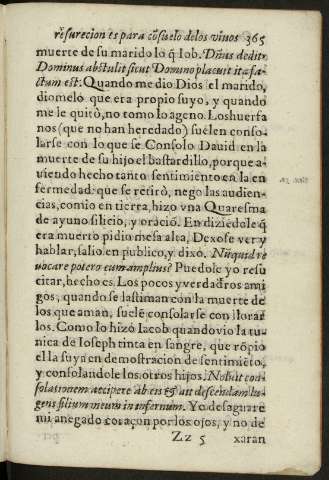 resurecion es para cõsuelo delos vivos 365
muerte de su marido lo q̃ Iob. Dñus dedit,
Dominus abstulit sicut Domino placuit ita fa-
ctum est. Quando me dio Dios el marido,
diomelo que era propio suyo, y quando
me le quitò, no tomo lo ageno. Los huerfa
nos (que no han heredado) suelen conso-
larse con lo que se Consolo Dauid en la
muerte de su hijo el bastardillo, porque a-
uiendo hecho tanto sentimiento en la en
fermedad: que se retirò, nego las audien-
cias, comio en tierra, hizo vna Quaresma
de ayuno silicio, y oraciõ. En diziẽdole q̃
era muerto pidio mesa alta, Dexose ver y
hablar, salio en publico, y dixo. Nũquid re
uocare potero eum amplius? Puedole yo resu
citar, hecho es. Los pocos y verdadr̃os ami
gos, quando se lastiman con la muerte de
los que aman, suelẽ consolarse con llorar
los. Como lo hizò Iacob quando vio la tu-
nica de Ioseph tinta en sangre, que rõpio
el la suya en demostracion de sentimiẽto,
y consolandole los otros hijos. Noluit con-
solationem accipere ab eis & ait descendam lu-
gens filium meum in infernum. Yo desaguare
mi anegado coraçon por los ojos, y no de
Zz 5 xaran